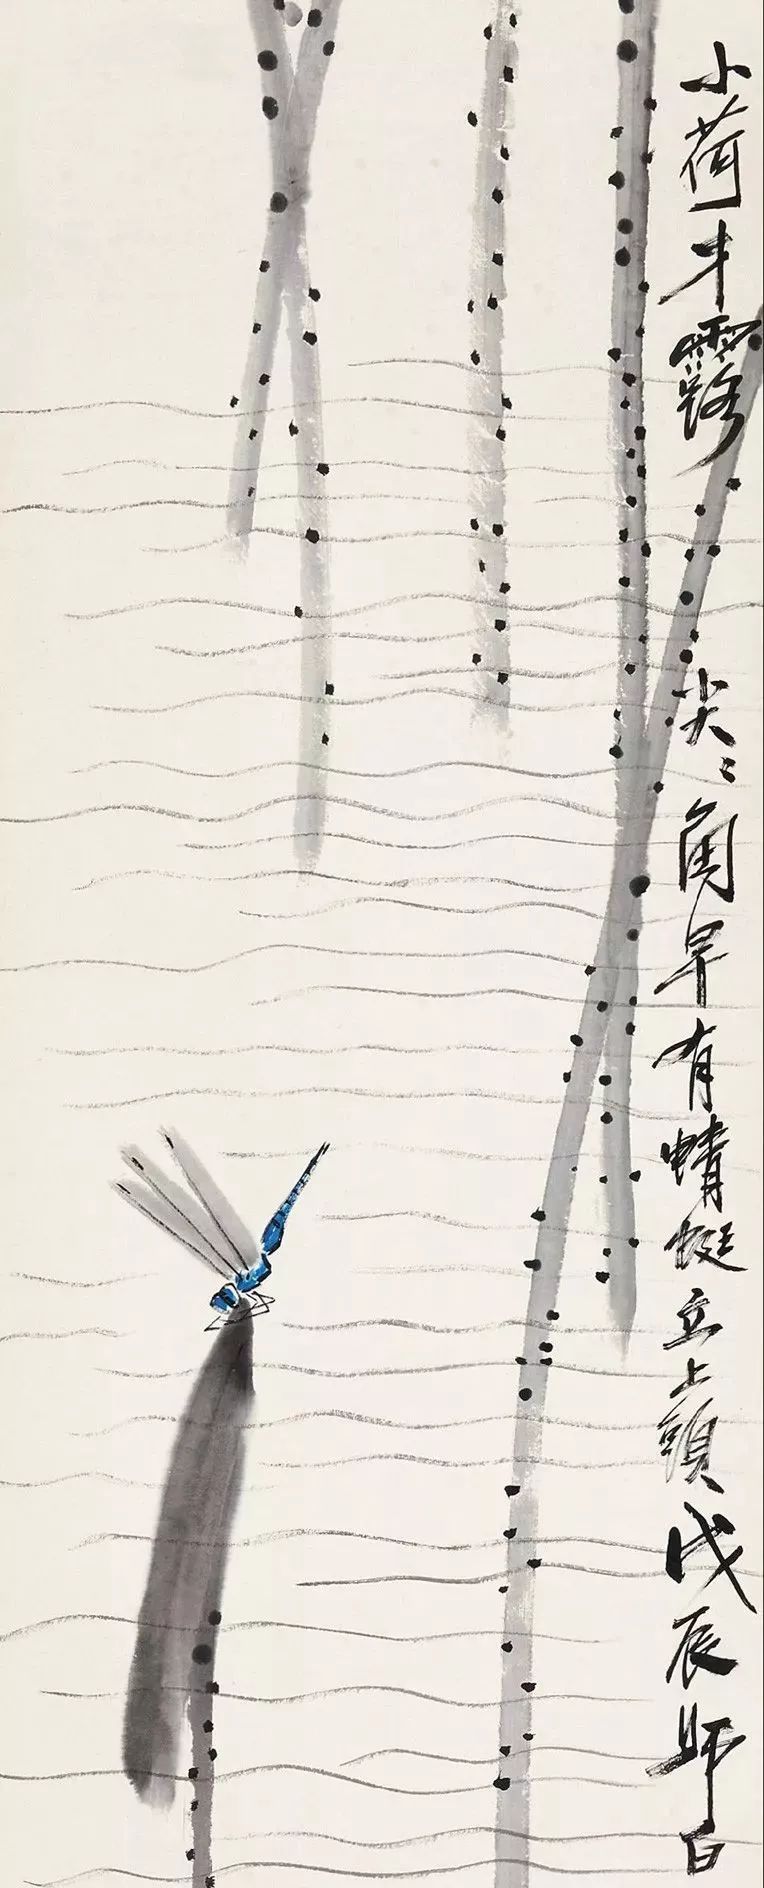 小荷才露尖〻角早有蜻蜓立上頭戊辰師白